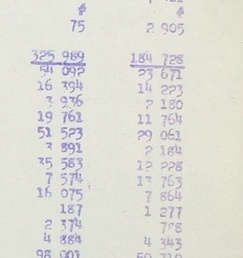 $ $
75 2 905
325 989 184 728
54 092 23 671
16 394 14 223
3 936 2 180
19 761 11 764
51 523 29 061
3 891 2 184
35 583 12 228
7 574 13 763
16 075 7 864
187 1 277
2 374 728
4 884 4 343
98 001